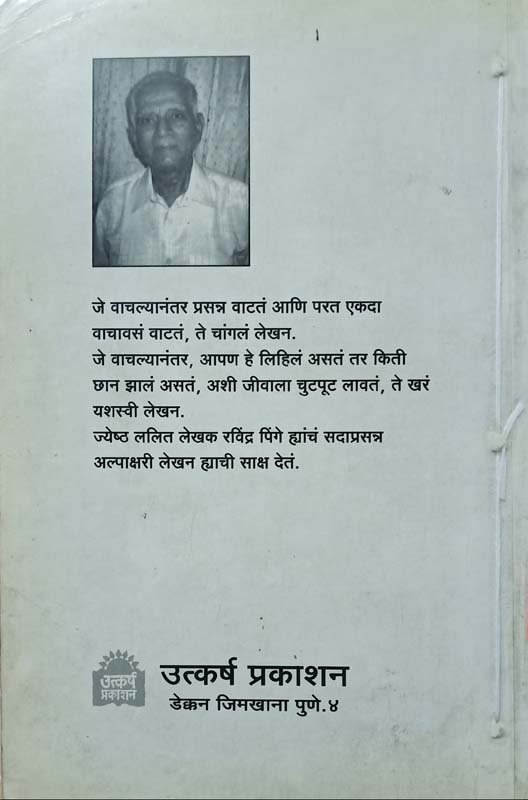 जे वाचल्यानंतर प्रसन्न वाटतं आणि परत एकदा
वाचावसं वाटतं, ते चांगलं लेखन.
जे वाचल्यानंतर, आपण हे लिहिलं असतं तर किती
छान झालं असतं, अशी जीवाला चुटपूट लावतं, ते खरं
यशस्वी लेखन.
ज्येष्ठ ललित लेखक रविंद्र पिंगे ह्यांचं सदाप्रसन्न
अल्पाक्षरी लेखन ह्याची साक्ष देतं.
उत्कर्ष
प्रकाशन
उत्कर्ष प्रकाशन
डेक्कन जिमखाना पुणे.४